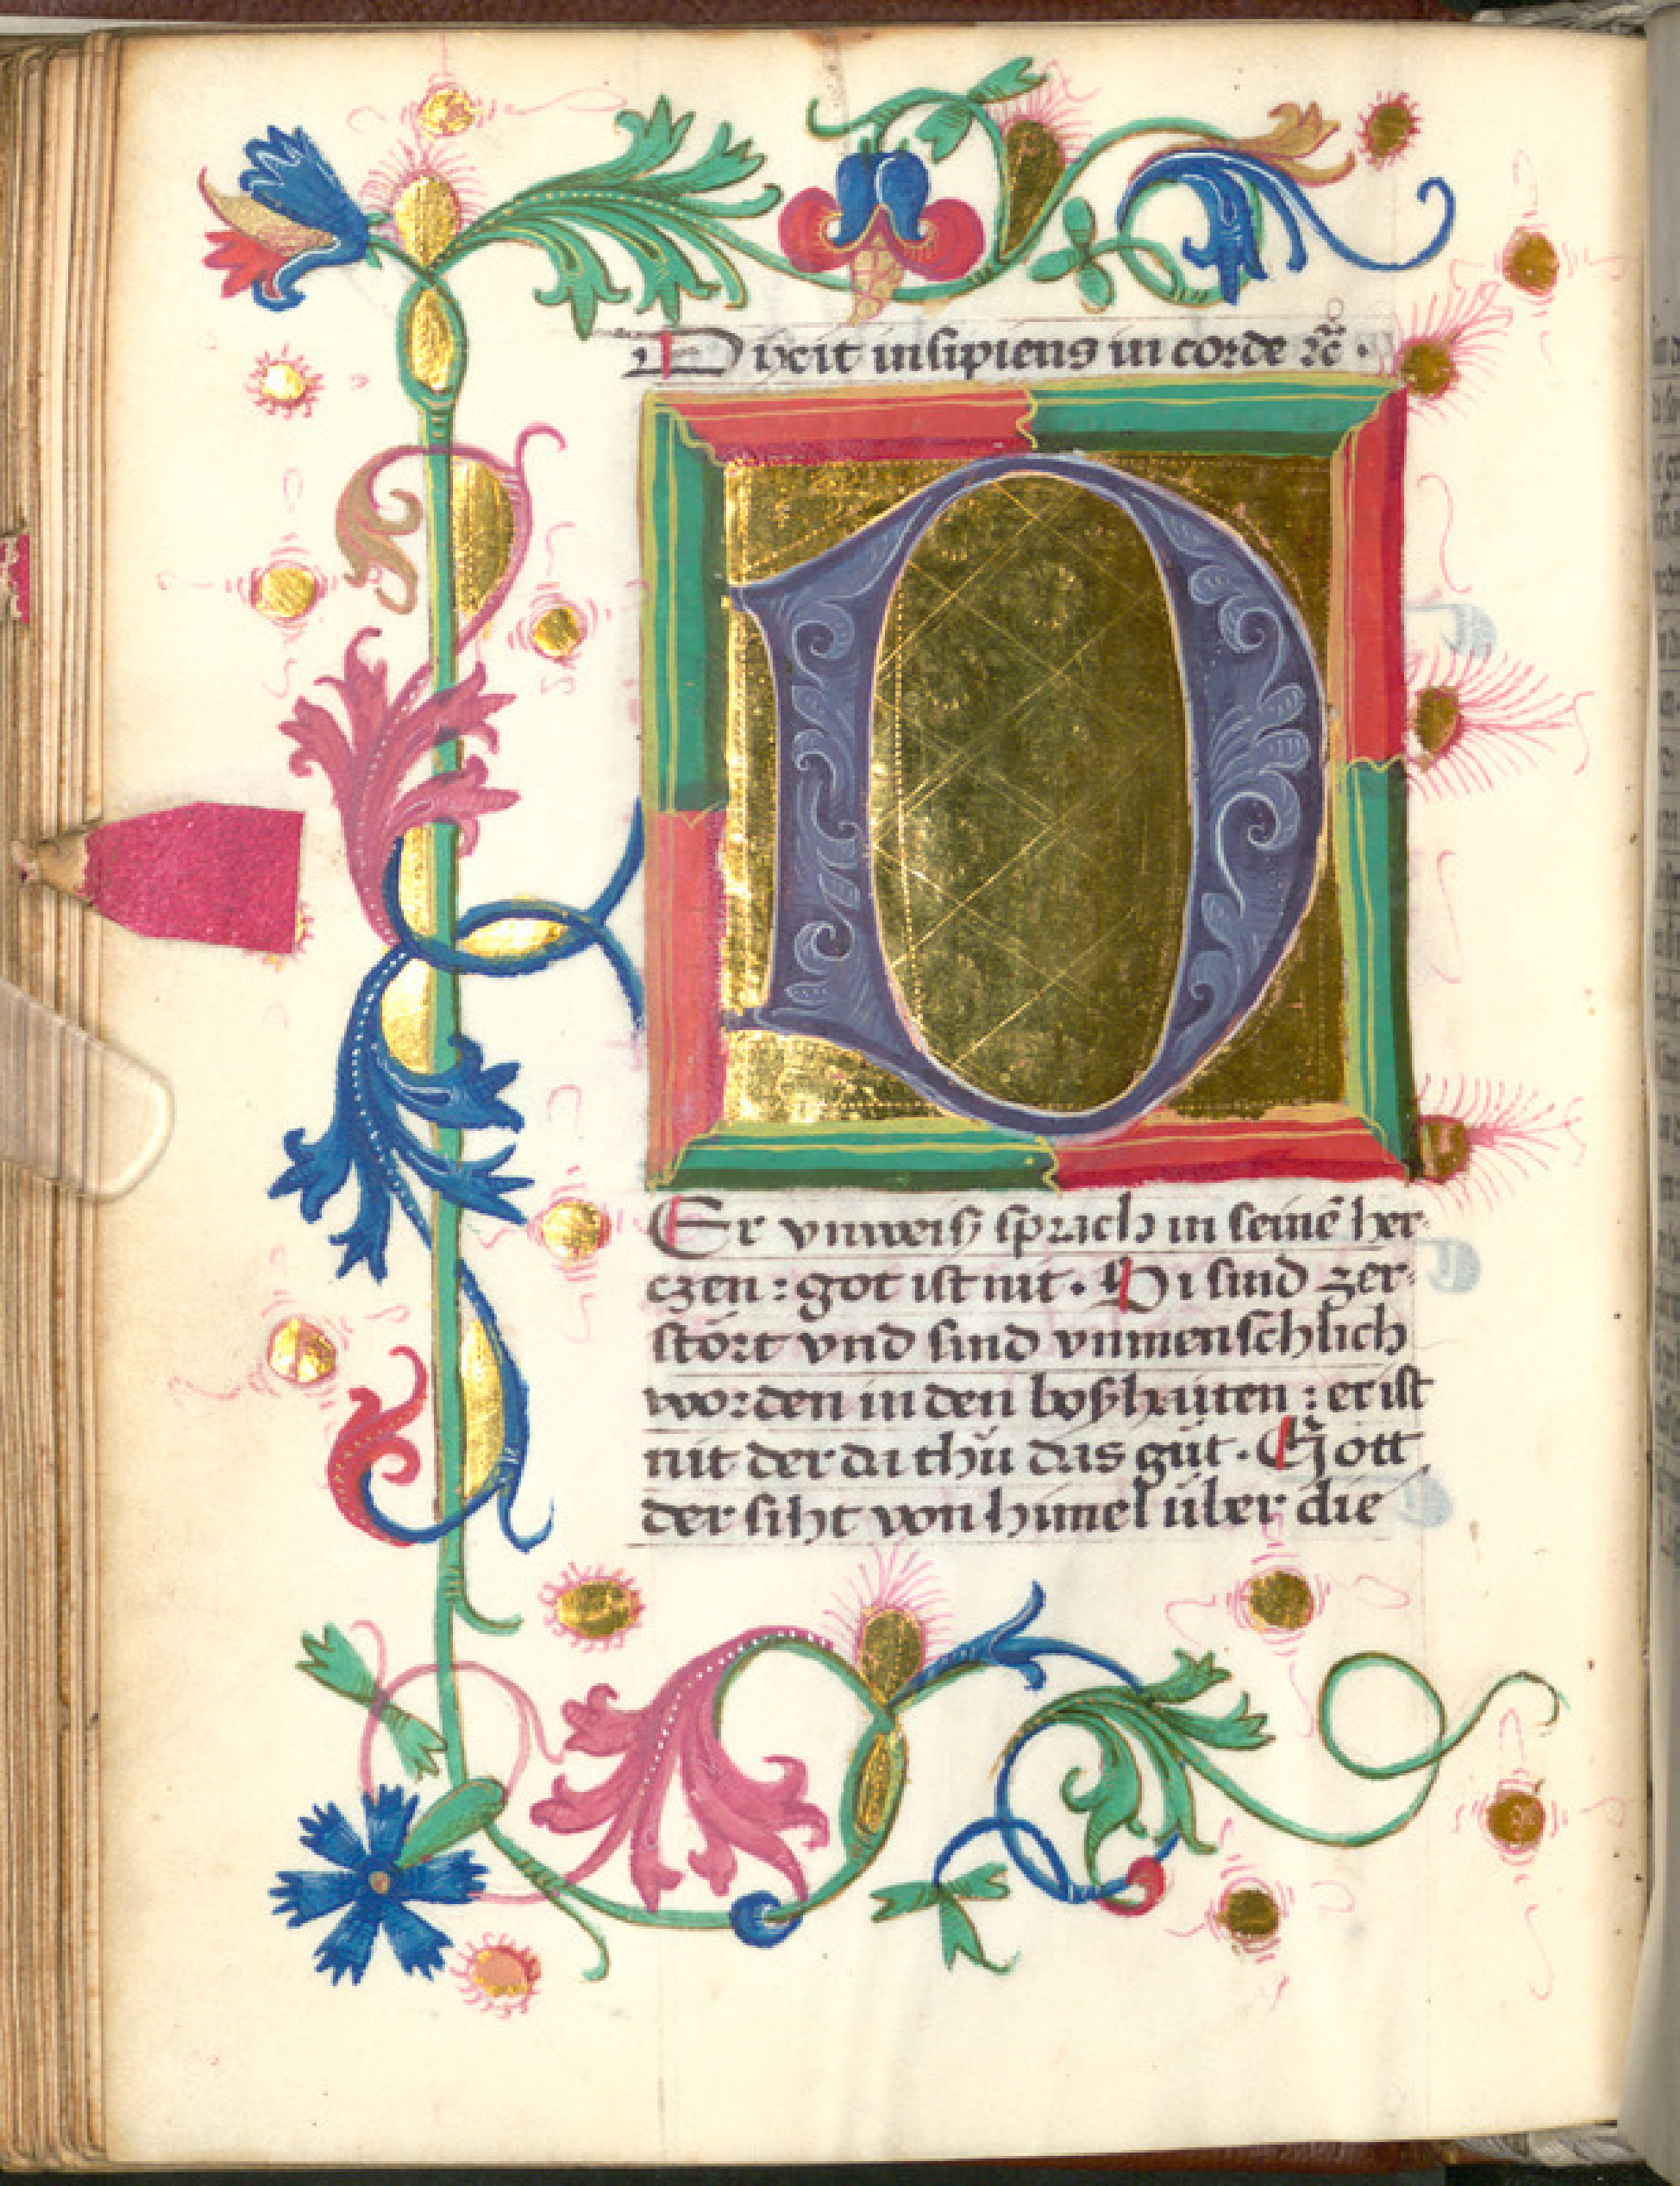 Dixit insipiens in corde ꝛc̃.
D
Er vnweiß sprach in seinē her
czen : got ist nit. Si sind zer
stört vnd sind vnmenschlich
worden in den boßhaiten : er ist
nit der da thů das gůt. Gott
der siht von himel über die